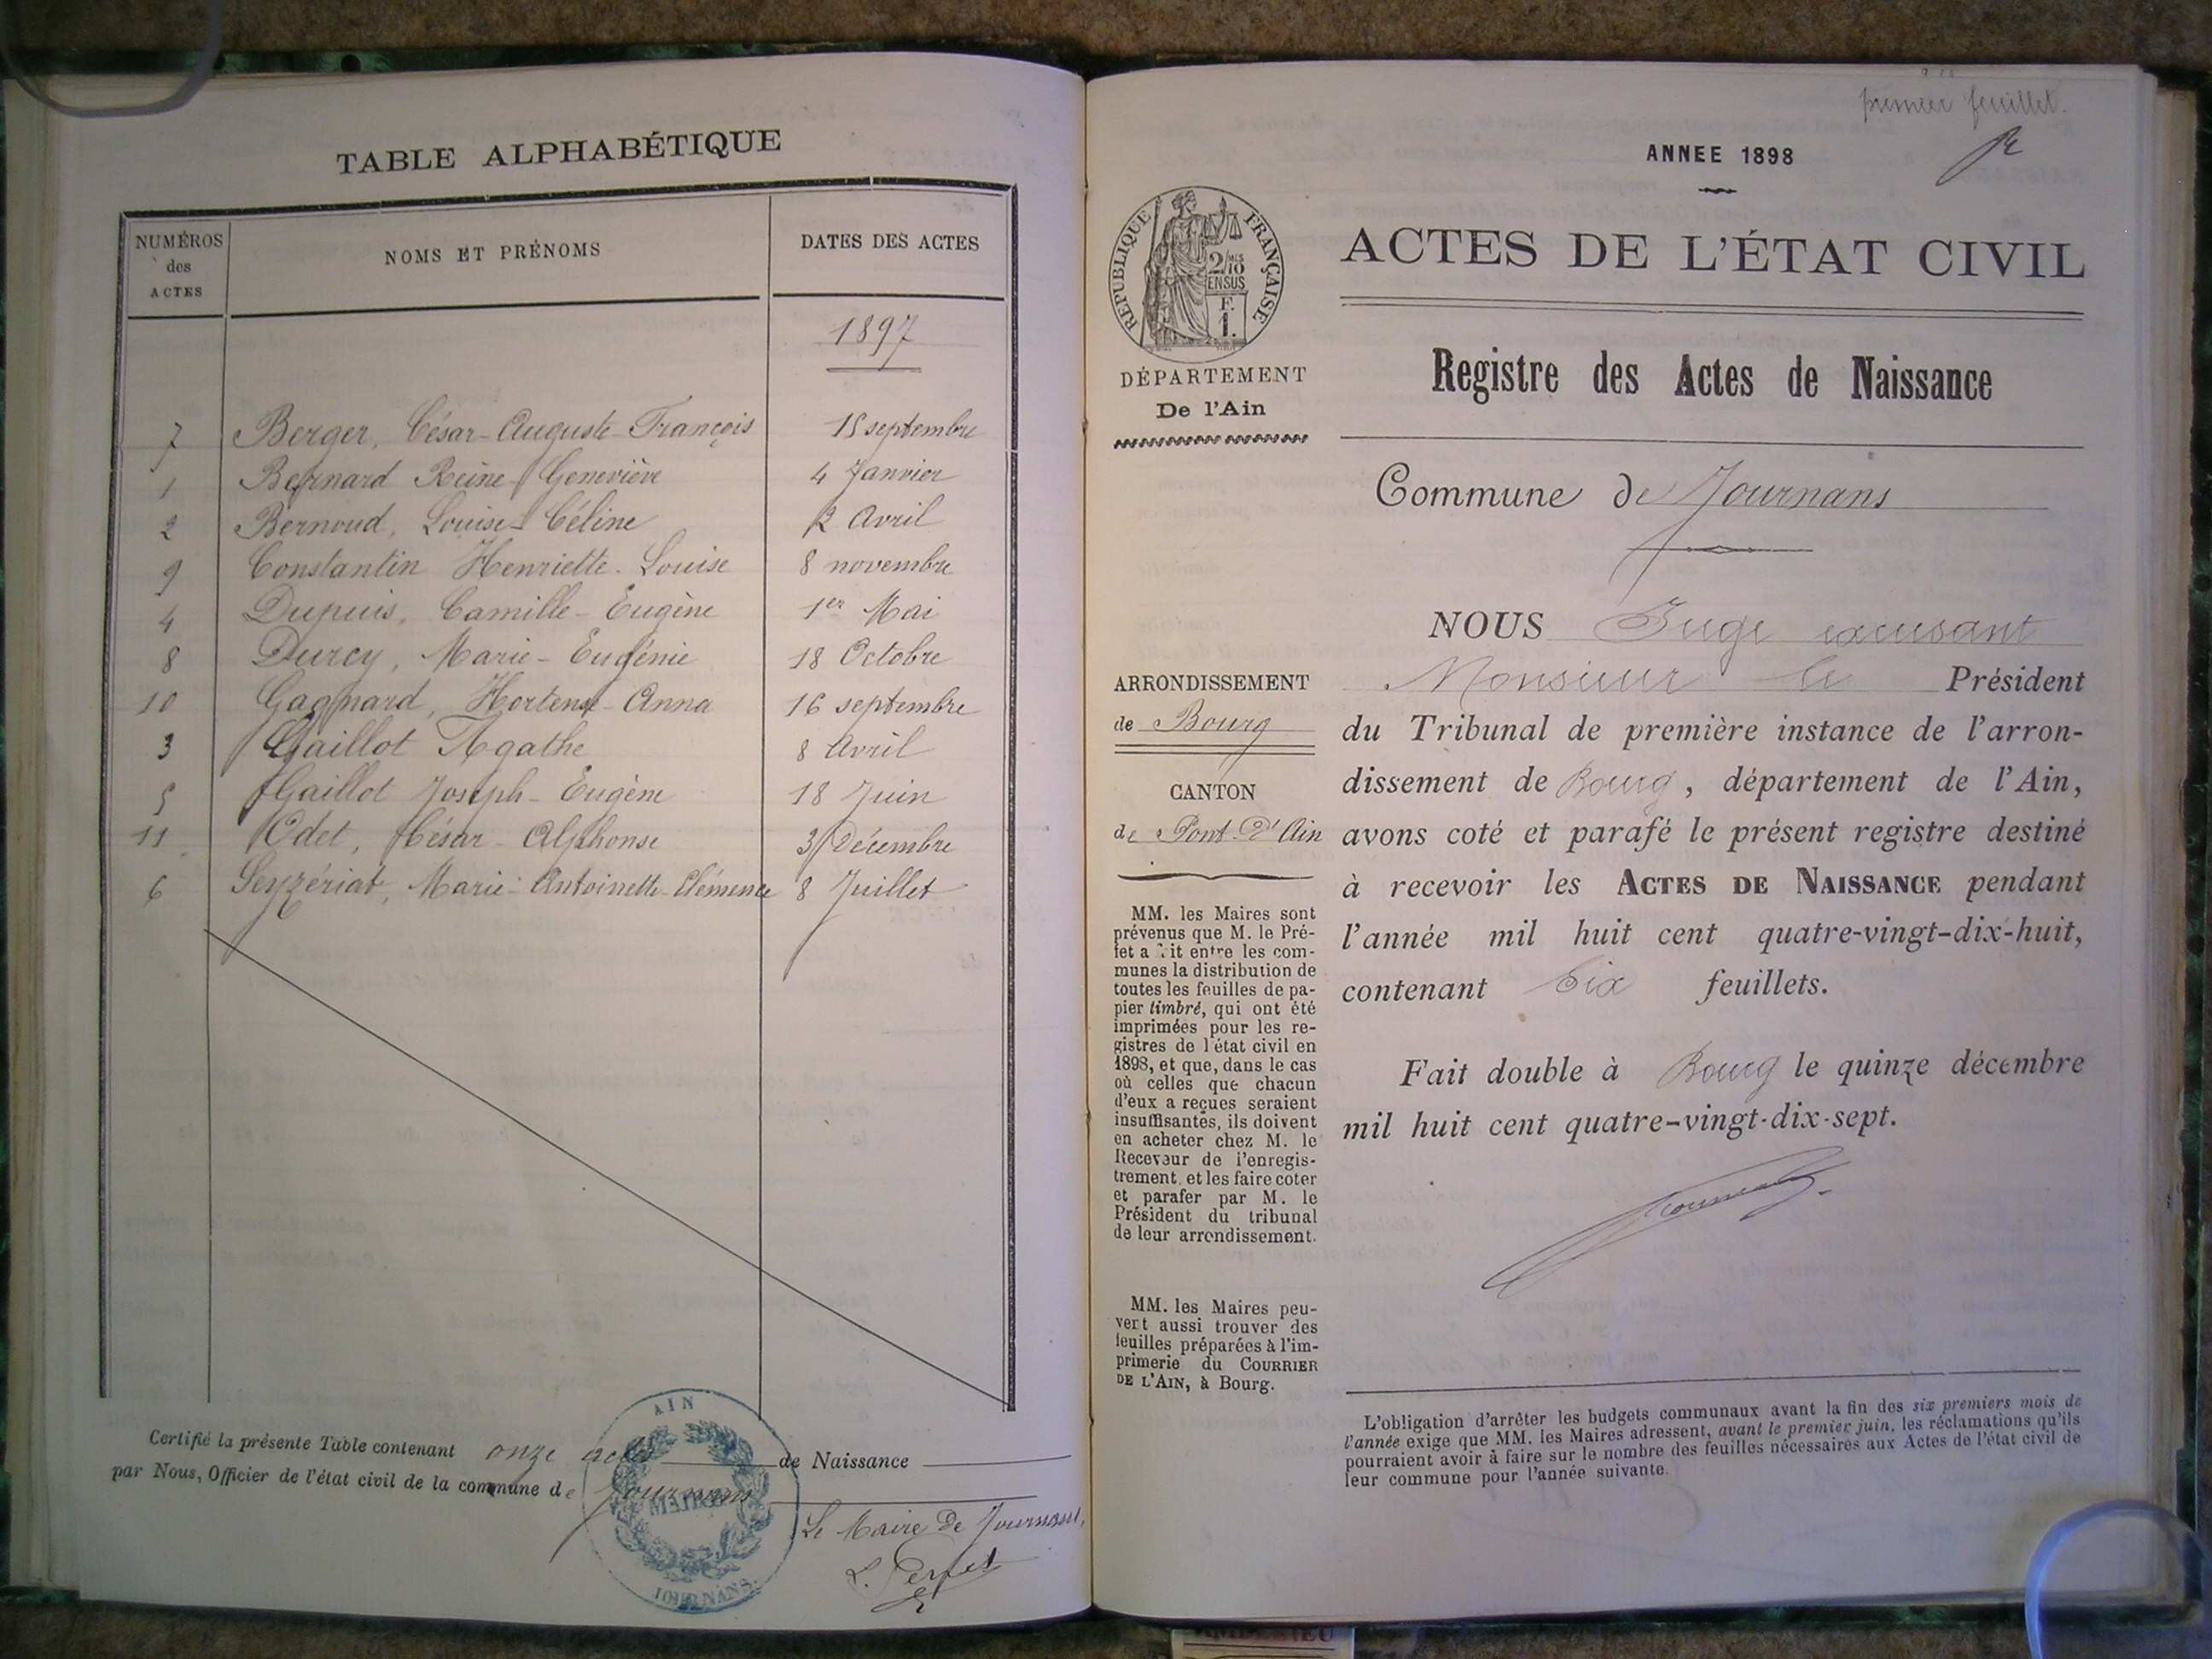 TABLE ALPHABÉTIQUE
NUMÉROS
des
ACTES
NOMS ET PRÉNOMS
DATES DES ACTES
1897
7 Berger, César-Auguste-François 15 septembre
1 Bernard Reine-Geneviève 4 Janvier
2 Bernoud, Louise-Céline 2 Avril
9 Constantin Henriette-Louise 8 novembre
4 Dupuis, Camille-Eugène 1er Mai
8 Durcy, Marie-Eugénie 18 Octobre
10 Gagnard, Hortense-Anna 16 septembre
3 Gaillot Agathe 8 Avril
5 Gaillot Joseph-Eugène 18 Juin
11 Odet, César-Alphonse 3 Décembre
6 Seyzériat, Marie-Antoinette-Clémence 8 Juillet
Certifié la présente Table contenant onze actes de Naissance
par Nous, Officier de l'état civil de la commune de Journans
AIN
MAIRIE
JOURNANS
Le Maire de Journans,
L. Perret
premier feuillet.
ANNEE 1898
RÉPUBLIQUE FRANÇAISE
2/10 MES
EN SUS
F.
1.
ACTES DE L'ÉTAT CIVIL
DÉPARTEMENT
De l'Ain
Registre des Actes de Naissance
Commune de Journans
ARRONDISSEMENT
de Bourg
CANTON
de Pont-d'Ain
MM. les Maires sont
prévenus que M. le Pré-
fet a fait entre les com-
munes la distribution de
toutes les feuilles de pa-
pier timbré, qui ont été
imprimées pour les re-
gistres de l'état civil en
1898, et que, dans le cas
où celles que chacun
d'eux a reçues seraient
insuffisantes, ils doivent
en acheter chez M. le
Receveur de l'enregis-
trement, et les faire coter
et parafer par M. le
Président du tribunal
de leur arrondissement.
MM. les Maires peu-
vent aussi trouver des
feuilles préparées à l'im-
primerie du COURRIER
DE L'AIN, à Bourg.
NOUS Juge excusant
Monsieur le Président
du Tribunal de première instance de l'arron-
dissement de Bourg, département de l'Ain,
avons coté et parafé le présent registre destiné
à recevoir les ACTES DE NAISSANCE pendant
l'année mil huit cent quatre-vingt-dix-huit,
contenant Six feuillets.
Fait double à Bourg le quinze décembre
mil huit cent quatre-vingt-dix-sept.
L'obligation d'arrêter les budgets communaux avant la fin des six premiers mois de
l'année exige que MM. les Maires adressent, avant le premier juin, les réclamations qu'ils
pourraient avoir à faire sur le nombre des feuilles nécessaires aux Actes de l'état civil de
leur commune pour l'année suivante.